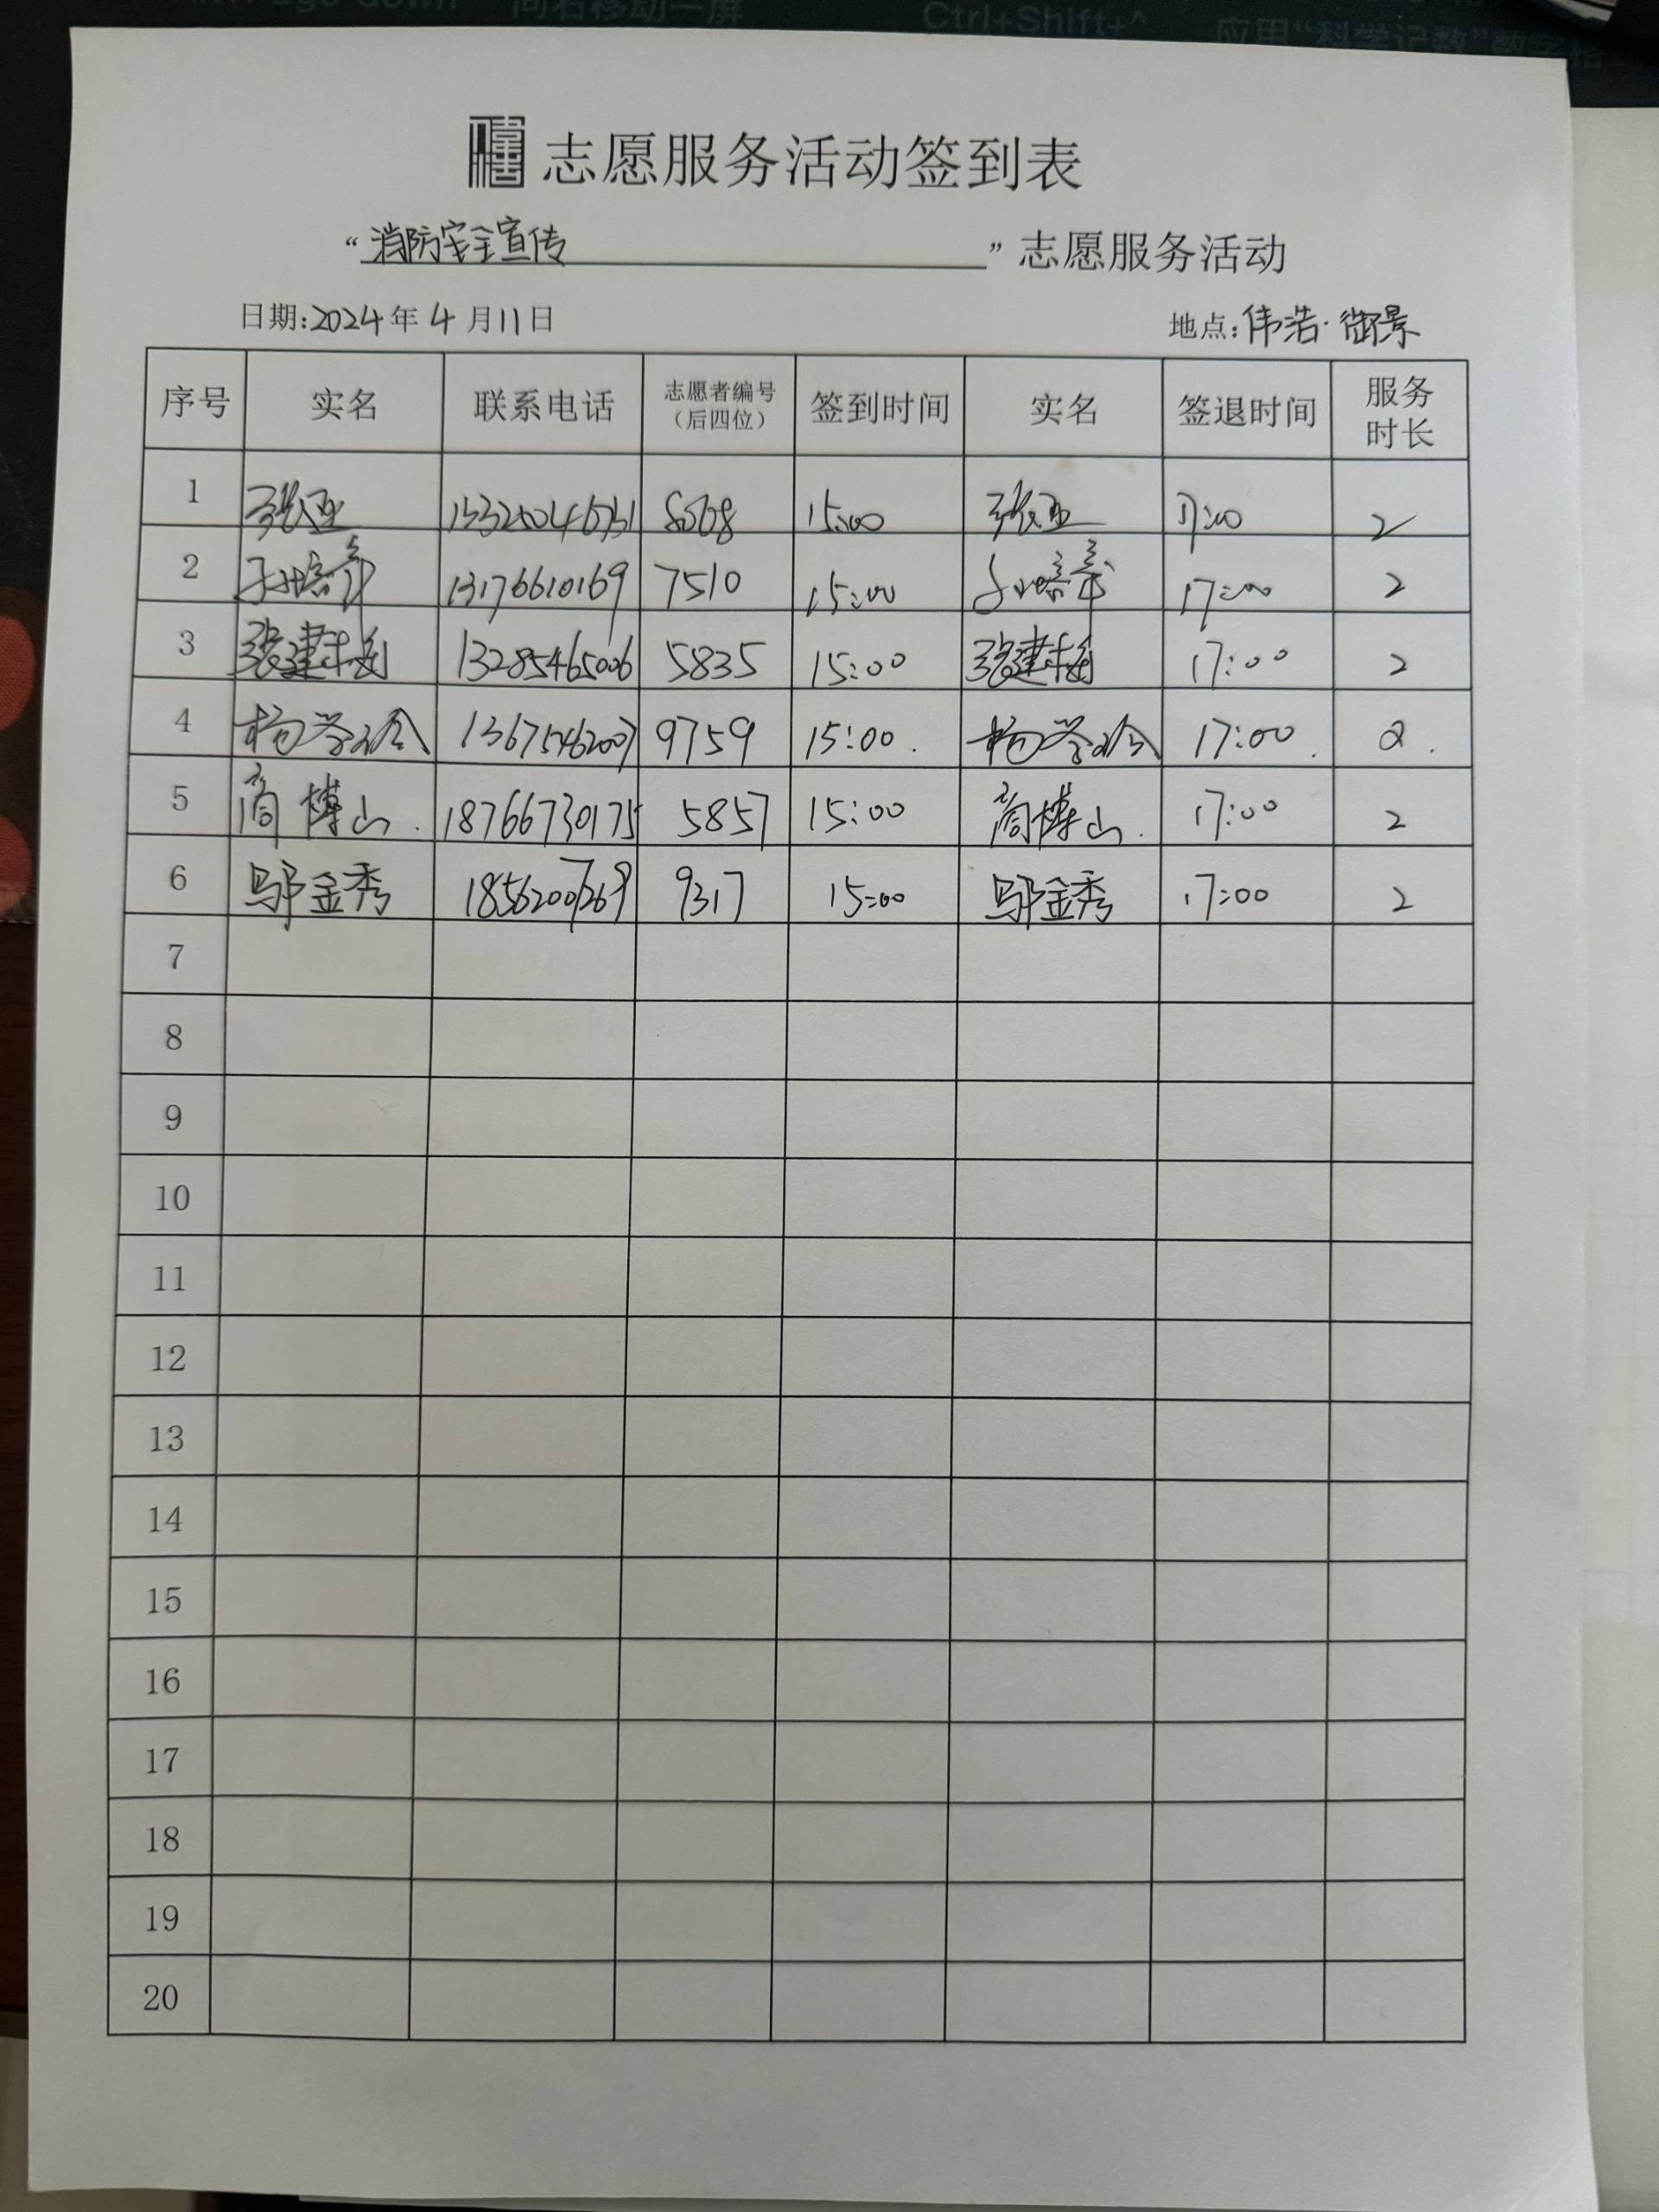 向右移动一屏
Ctrl+Shift+^
应用“科学记数”数字格式
志愿服务活动签到表
“消防安全宣传”志愿服务活动
日期:2024年4月11日 地点:伟浩·御景
序号 实名 联系电话 志愿者编号（后四位） 签到时间 实名 签退时间 服务时长
1 张亚 15:00 张亚 17:00 2
2 13176610169 7510 15:00 17:00 2
3 张建梅 13285465006 5835 15:00 张建梅 17:00 2
4 杨学玲 13675462007 9759 15:00. 杨学玲 17:00. 2.
5 商博山. 18766730175 5857 15:00 商博山. 17:00 2
6 邬金秀 18562007269 9317 15:00 邬金秀 17:00 2
7
8
9
10
11
12
13
14
15
16
17
18
19
20